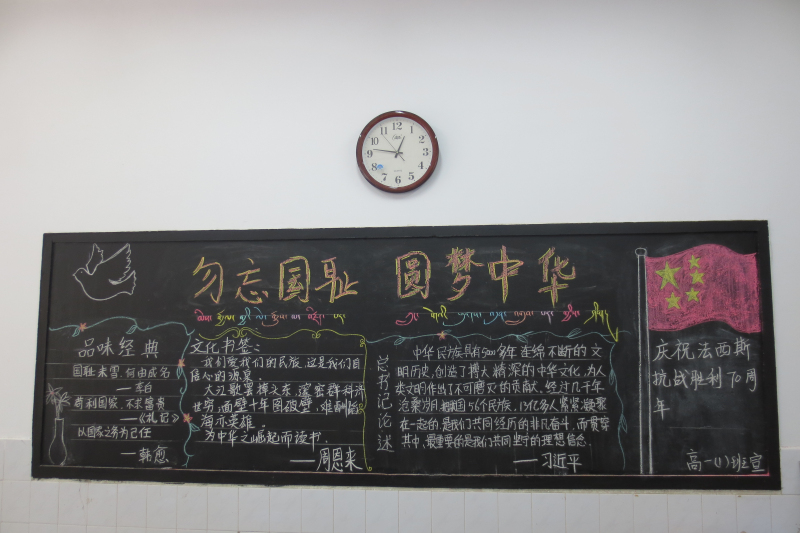 12
1
2
3
4
5
6
7
8
9
10
11
勿忘国耻 圆梦中华
品味经典
国耻未雪,何由成名
——李白
苟利国家,不求富贵
——《礼记》
以国家之务为己任
——韩愈
文化书签:
我们爱我们的民族,这是我们自
信心的源泉
大江歌罢掉头东,邃密群科济
世穷,面壁十年图破壁,难酬蹈
海亦英雄.
为中华之崛起而读书.
——周恩来
总书记论述
中华民族具有5000多年连绵不断的文
明历史,创造了博大精深的中华文化,为人
类文明作出了不可磨灭的贡献,经过几千年
沧桑岁月,把我国56个民族,13亿多人紧紧凝聚
在一起的是我们共同经历的非凡奋斗,而贯穿
其中,最重要的是我们共同坚守的理想信念.
——习近平
庆祝法西斯
抗战胜利70周
年
高一(1)班宣